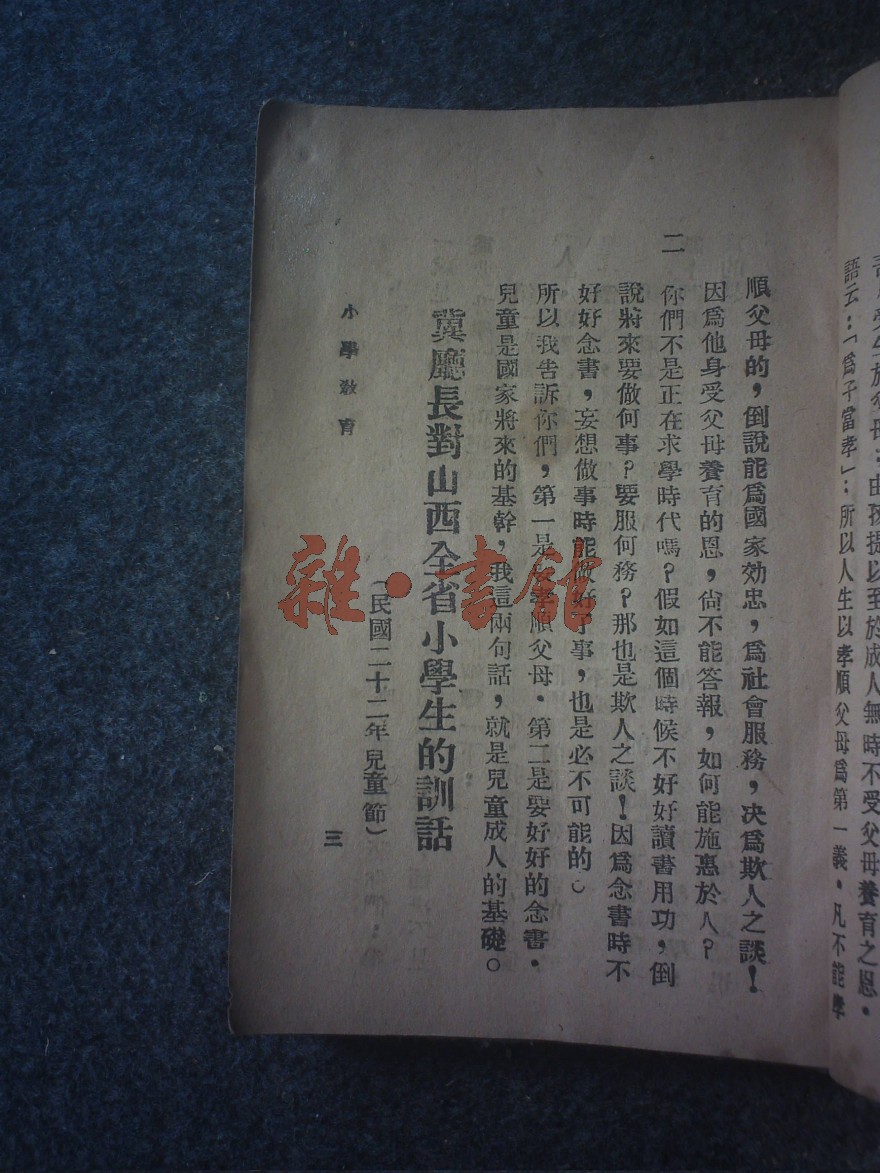 受生於父母:由孩提以至於成人無時不受父母養育之恩.
語云:「爲子當孝」:所以人生以孝順父母爲第一義.凡不能孝
順父母的,倒說能爲國家効忠,爲社會服務,决爲欺人之談!
因爲他身受父母養育的恩,尙不能答報,如何能施惠於人?
二
你們不是正在求學時代嗎?假如這個時候不好好讀書用功,倒
說將來要做何事?要服何務?那也是欺人之談!因爲念書時不
好好念書,妄想做事時能做好了事,也是必不可能的。
所以我告訴你們,第一是要孝順父母.第二是要好好的念書.
兒童是國家將來的基幹,我這兩句話,就是兒童成人的基礎。
冀廳長對山西全省小學生的訓話
(民國二十二年兒童節)
小學敎育
三
雜·書舘